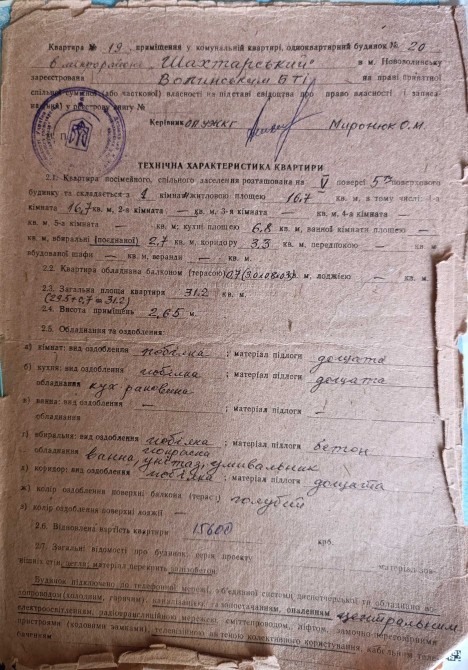 Квартира № 19 приміщення у комунальній квартирі, одноквартирний будинок № 20
в мікрорайоні "Шахтарський" в м. Нововолинську
зареєстрована Волинським БТІ на праві приватної
спільної сумісної (або часткової) власності на підставі свідоцтва про право власності і записано
в реєстрову книгу №
Керівник ОПУЖКГ Миронюк О. М.
М. П.
ТЕХНІЧНА ХАРАКТЕРИСТИКА КВАРТИРИ
2.1. Квартира посімейного, спільного заселення розташована на V поверсі 5ти поверхового
будинку та складається з 1 кімнат житловою площею 16,7 кв. м, в тому числі: 1-а
кімната 16,7 кв. м, 2-а кімната — кв. м, 3-я кімната — кв. м, 4-а кімната —
кв. м, 5-а кімната — кв. м; кухні площею 6,8 кв. м, ванної кімнати площею —
кв. м, вбиральні (поєднаної) 2,7 кв. м, коридору 3,3 кв. м, передпокою — кв. м,
вбудованої шафи — кв. м, веранди — кв. м.
2.2. Квартира обладнана балконом (терасою) 0,7 кв. м, лоджією — кв. м.
2.3. Загальна площа квартири 31.2 кв. м.
(29.5+0,7=31.2)
2.4. Висота приміщень 2,65 м.
2.5. Обладнання та оздоблення:
а) кімнат: вид оздоблення побілка ; матеріал підлоги дощата
б) кухня: вид оздоблення побілка ; матеріал підлоги дощата
обладнання кух раковина
в) ванна: вид оздоблення — ; матеріал підлоги —
обладнання
г) вбиральня: вид оздоблення побілка ; матеріал підлоги бетон
покраска
обладнання ванна, унітаз, умивальник
коридор: вид оздоблення побілка ; матеріал підлоги дощата
ж) колір оздоблення поверхні балкона (тераси) голубий
з) колір оздоблення поверхні лоджії —
2.6. Відновлена вартість квартири 15600 крб.
2.7. Загальні відомості про будинок: серія проекту матеріал зов-
нішніх стін цегла; матеріал перекрить залізобетон.
Будинок підключено до телефонної мережі, об'єднаної системи диспетчерської та обладнано
водопроводом (холодним, гарячим), каналізацією, газопостачанням, опаленням центральним,
електроосвітленням, радіотрансляційною мережею, сміттєпроводом, ліфтом, замочно-переговорними
пристроями (кодовими замками), телевізійною антеною колективного користування, кабельним теле-
баченням